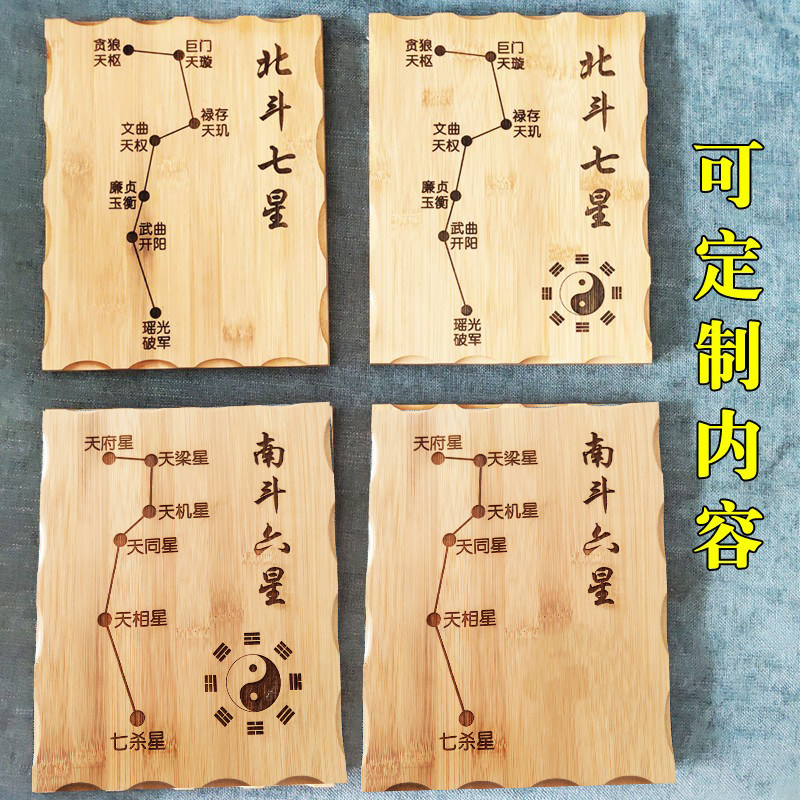 北斗七星
贪狼
天枢
巨门
天璇
禄存
天玑
文曲
天权
廉贞
玉衡
武曲
开阳
瑶光
破军
北斗七星
贪狼
天枢
巨门
天璇
禄存
天玑
文曲
天权
廉贞
玉衡
武曲
开阳
瑶光
破军
南斗六星
天府星
天梁星
天机星
天同星
天相星
七杀星
南斗六星
天府星
天梁星
天机星
天同星
天相星
七杀星
可定制内容